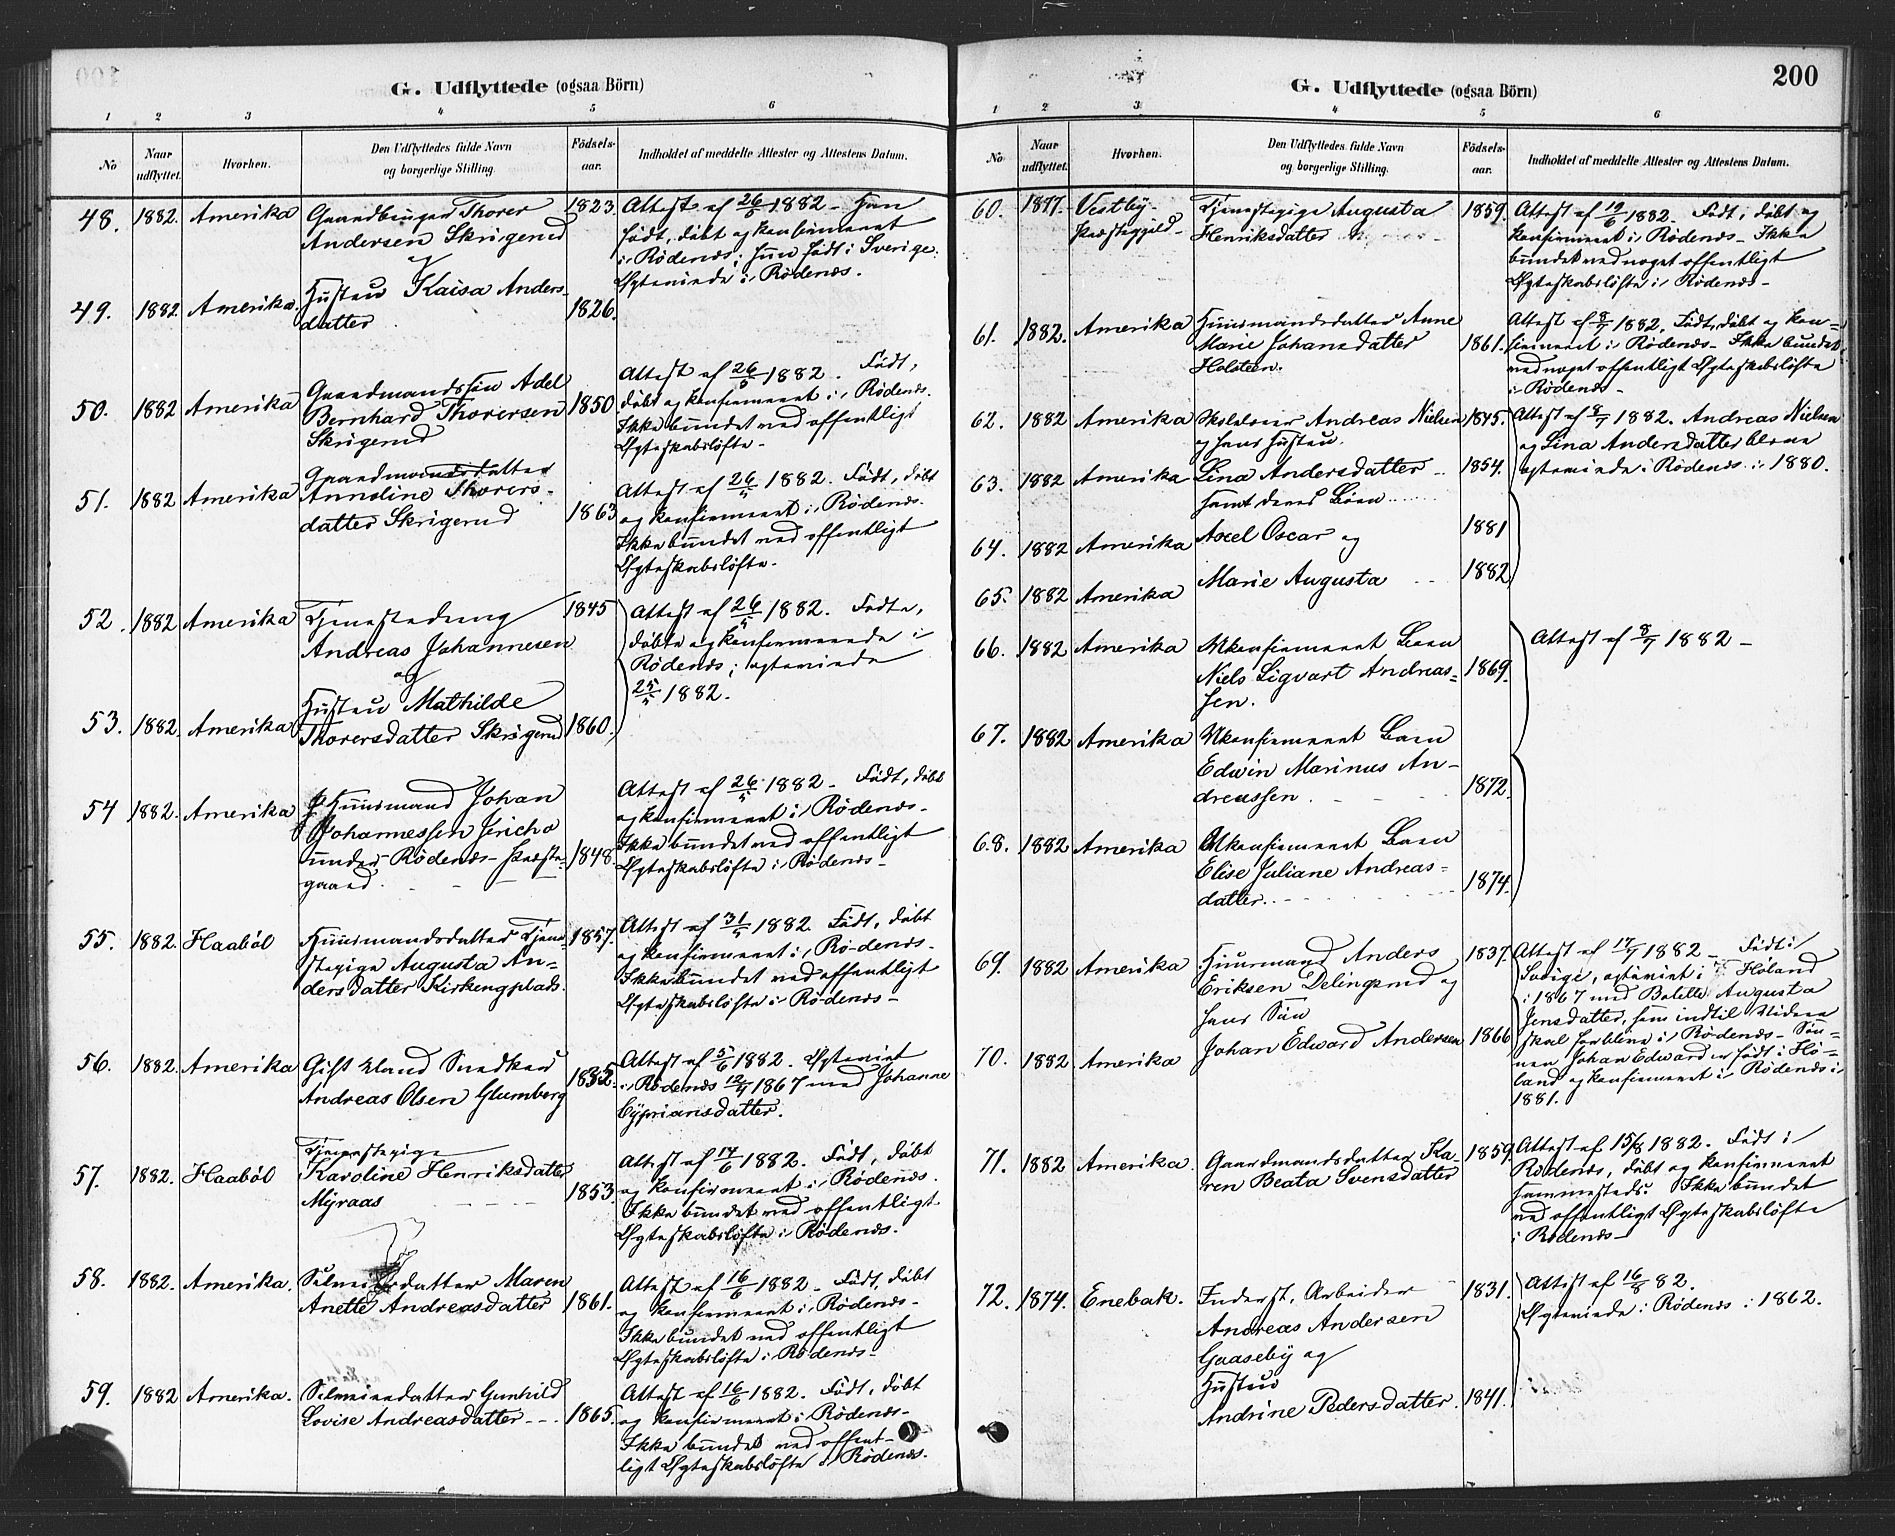 G. Udflyttede (ogsaa Börn)
1 2 3 4 5 6
No
Naar udflyttet.
Hvorhen.
Den Udflyttedes fulde Navn og borgerlige Stilling.
Födsels-aar.
Indholdet af meddelte Attester og Attestens Datum.
48. 1882. Amerika Gaardbruger Thorer 1823. Attest af 26/5 1882 – Han
Andersen Skrigerud født, døbt og konfirmeret
i Rødenæs; hun født i Sverige.
Ægteviede i Rødenæs.
49. 1882. Amerika. Hustru Kaisa Anders- 1826.
datter
50. 1882 Amerika Gaardmandssøn Adel 1850 Attest af 26/5 1882. Født,
Bernhard Thorersen døbt og konfirmeret i Rødenæs.
Skrigerud Ikke bundet ved offentligt
Ægteskabsløfte –
51. 1882 Amerika Gaardmandsdatter 1863 Attest af 26/5 1882. Født, døbt
Annoline Thorers- og konfirmeret i Rødenæs.
datter Skrigerud Ikke bundet ved offentligt
Ægteskabsløfte –
52. 1882 Amerika Tjenestedreng 1845 Attest af 26/5 1882. Fødte,
Andreas Johannesen døbte og konfirmerede i
og Rødenæs; ægteviede
25/5 1882.
53. 1882. Amerika Hustru Mathilde 1860.
Thorersdatter Skrigerud
54 1882. Amerika Husmand Johan 1848. Attest af 26/5 1882 – Født, døbt
Johannessen Jericho og konfirmeret i Rødenæs –
under Rødenæs Præste- Ikke bundet ved offentligt
gaard. Ægteskabsløfte i Rødenæs –
55. 1882. Haabøl Husmandsdatter Tjene- 1857. Attest af 31/5 1882. Født, døbt
stepige Augusta An- og konfirmeret i Rødenæs –
dersdatter Kirkengplads. Ikke bundet ved offentligt
Ægteskabsløfte i Rødenæs –
56. 1882. Amerika Gift Mand Snedker 1832. Attest af 5/6 1882. Ægteviet
Andreas Olsen Glumberg i Rødenæs 1867 med Johanne
Cypriansdatter.
57. 1882. Haabøl Tjenestepige 1853 Attest af 14/6 1882. Født, døbt
Karoline Henriksdatter og konfirmeret i Rødenæs.
Myraas Ikke bundet ved offentligt
Ægteskabsløfte i Rødenæs.
58. 1882. Amerika. Maren 1861. Attest af 16/6 1882 – Født, døbt
Anette Andreasdatter og konfirmeret i Rødenæs –
Ikke bundet ved offentligt
Ægteskabsløfte i Rødenæs –
59. 1882 Amerika. Gunhild 1865. Attest af 16/6 1882. Født, døbt
Lovise Andreasdatter og konfirmeret i Rødenæs –
Ikke bundet ved offent-
ligt Ægteskabsløfte i Rødenæs.
G. Udflyttede (ogsaa Börn)
200
1 2 3 4 5 6
No
Naar udflyttet.
Hvorhen.
Den Udflyttedes fulde Navn og borgerlige Stilling.
Födsels-aar.
Indholdet af meddelte Attester og Attestens Datum.
60. 1877. Vestby- Tjenestepige Augusta 1859. Attest af 19/6 1882. Født, døbt og
Præstegjeld – Henriksdatter konfirmeret i Rødenæs – Ikke
bundet ved noget offentligt
Ægteskabsløfte i Rødenæs –
61. 1882. Amerika Husmandsdatter Anne 1861. Attest af 8/7 1882. Født, døbt og kon-
Marie Johansdatter firmeret i Rødenæs – Ikke bundet
Holsteen. ved noget offentligt Ægteskabsløfte
i Rødenæs –
62. 1882 Amerika Skolelærer Andreas Nielsen 1845. Attest af 8/7 1882. Andreas Nielsen
og hans Hustru. og Lina Andersdatter bleve
63. 1882 Amerika Lina Andersdatter 1854. ægteviede i Rødenæs i 1880.
samt deres Børn
64. 1882 Amerika Axel Oscar og 1881
65. 1882 Amerika Marie Augusta 1882
66. 1882 Amerika Ukonfirmeret Barn 1869. Attest af 8/7 1882 –
Niels Sigvart Andreas-
sen.
67. 1882 Amerika Ukonfirmeret Barn 1872.
Edwin Marinus An-
dreassen.
68. 1882 Amerika Ukonfirmeret Barn 1874.
Elise Juliane Andreas-
datter.
69. 1882 Amerika Husmand Anders 1837. Attest af 17/7 1882 – Født i
Eriksen Delingsrud og Sverige, ægteviet i Høland
hans Søn i 1867 med Bolette Augusta
Jensdatter, som indtil Videre
skal forblive i Rødenæs – Søn-
70. 1882 Amerika Johan Edward Andersen 1866 nen Johan Edward er født i Hø-
land og konfirmeret i Rødenæs i
1881.
71. 1882 Amerika. Gaardmandsdatter Ka- 1859. Attest af 15/8 1882. Født i
ren Beata Svensdatter Rødenæs, døbt og konfirmeret
sammesteds. Ikke bundet
ved offentligt Ægteskabsløfte
i Rødenæs –
72. 1874. Enebak. Inderst, Arbeider 1831. Attest af 16/8 82.
Andreas Andersen Ægteviede i Rødenæs i 1862.
Gaaseby og
Hustru
Andrine Pedersdatter. 1841.